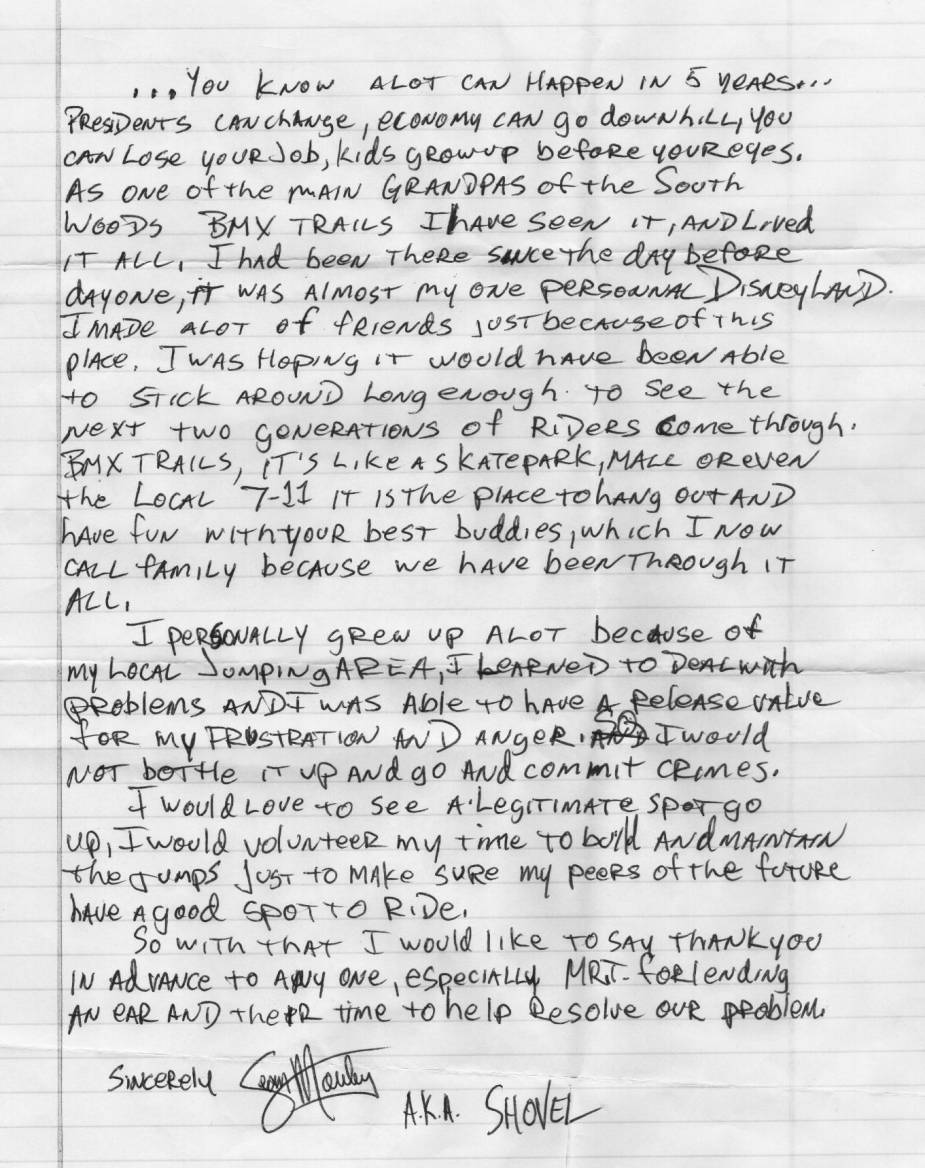 ...You know alot can happen in 5 years...
Presidents can change, economy can go downhill, you
can lose your job, kids grow up before your eyes.
As one of the main grandpas of the South
Woods BMX trails I have seen it, and lived
it all, I had been there since the day before
day one, it was almost my one personnal Disneyland.
I made alot of friends just because of this
place. I was hoping it would have been able
to stick around long enough to see the
next two generations of riders come through.
BMX trails, it's like a skatepark, mall or even
the local 7-11 it is the place to hang out and
have fun with your best buddies, which I now
call family because we have been through it
all.
I personally grew up alot because of
my local jumping area, I learned to deal with
problems and I was able to have a release valve
for my frustration and anger. So I would
not bottle it up and go and commit crimes.
I would love to see a legitimate spot go
up, I would volunteer my time to build and maintain
the jumps just to make sure my peers of the future
have a good spot to ride.
So with that I would like to say thank you
in advance to any one, especially MRT. for lending
an ear and their time to help resolve our problem.
Sincerely
A.K.A. Shovel